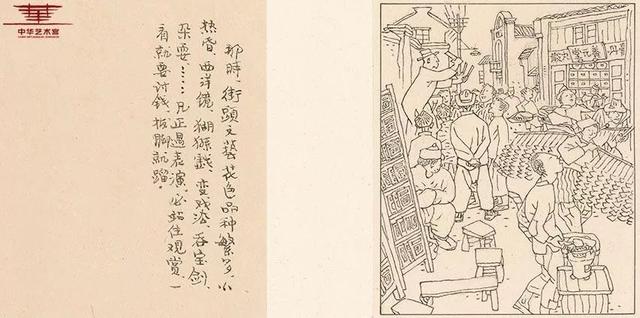 中华艺术宫
那時,街頭文藝花色品种繁多,小
热昏、西洋镜、猢狲戲、变戏法、吞宝剑、
杂耍……凡正遇表演,必站住观赏,一
看就要讨钱,拔脚就蹓。